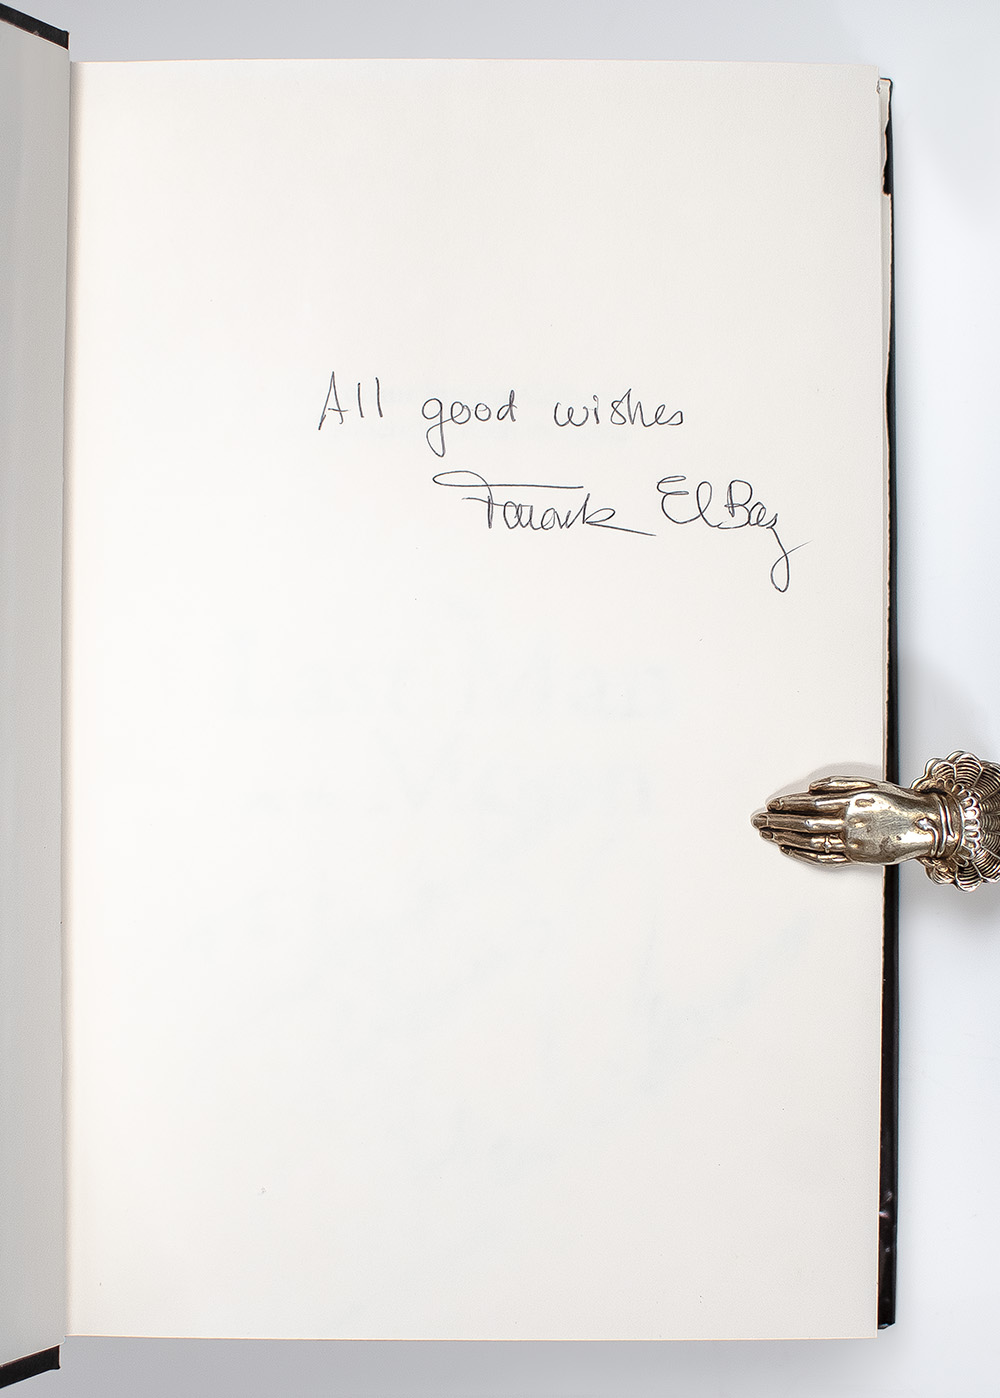 All good wishes
Farouk El Baz